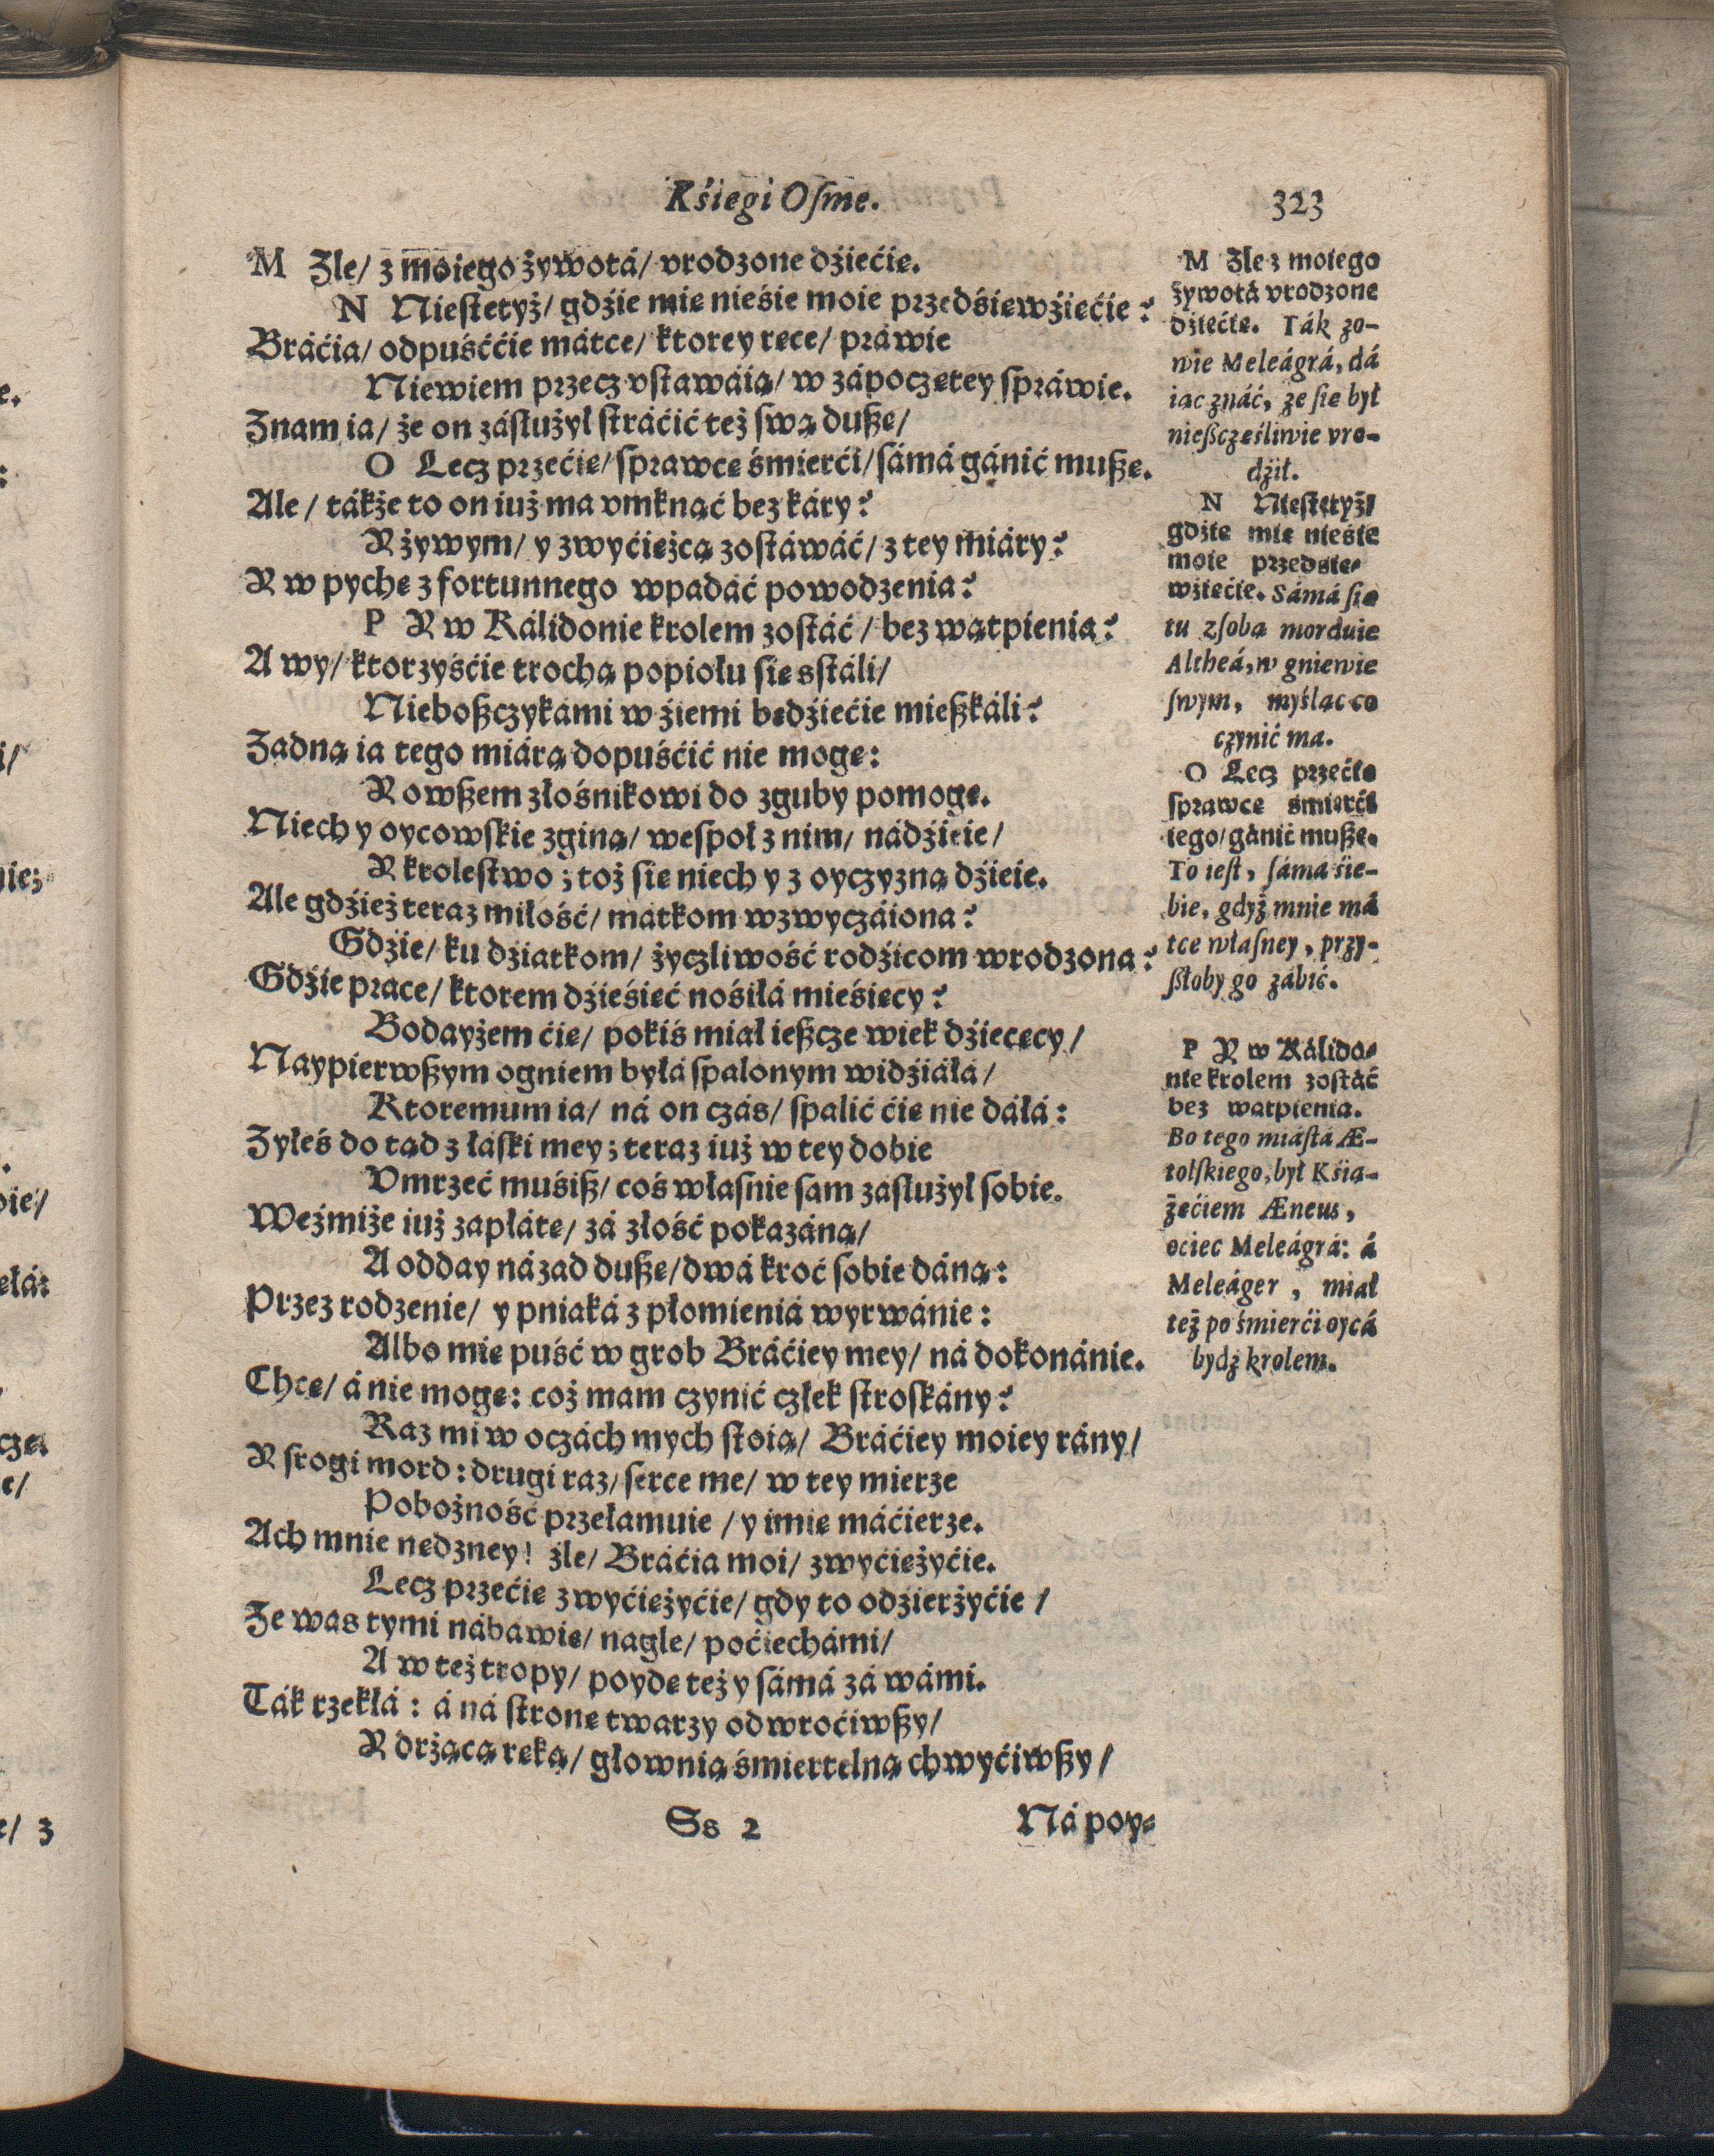 Kśięgi Oſme.
323
M Zle/ z moiego żywotá/ vrodzone dźiećię.
N Nieſtetyż/ gdźie mię nieśie moie przedśięwźięćie?
Bráćia/ odpuśććie mátce/ ktorey ręce/ práwie
Niewiem przecz vſtawáią/ w zápoczętey ſpráwie.
Znam ia/ że on záſłużył ſtráćić też ſwą duſzę/
O Lecz przećię/ ſprawcę śmierći/ ſámá gánić muſzę.
Ale/ tákże to on iuż ma vmknąć bez káry?
Y żywym/ y zwyćięzcą zoſtáwáć/ z tey miáry?
Y w pychę z fortunnego wpadáć powodzenia?
P Y w Kálidonie krolem zoſtáć/ bez wątpienia?
A wy/ ktorzyśćie trochą popiołu ſię sſtáli/
Nieboſzczykámi w źiemi będźiećie mieſzkáli?
Zadną ia tego miárą dopuśćić nie mogę:
Y owſzem złośnikowi do zguby pomogę.
Niech y oycowſkie zginą/ weſpoł z nim/ nádźieie/
Y kroleſtwo; toż ſię niech y z oyczyzną dźieie.
Ale gdźież teraz miłość/ mátkom wzwyczáiona?
Gdźie/ ku dźiatkom/ życzliwość rodźicom wrodzona?
Gdźie prace/ ktorem dźieśięć nośiłá mieśięcy?
Bodayżem ćię/ pokiś miał ieſzcze wiek dźiecęcy/
Naypierwſzym ogniem byłá ſpalonym widźiáłá/
Ktoremum ia/ ná on czás/ ſpalić ćię nie dáłá:
Zyłeś do tąd z łáſki mey; teraz iuż w tey dobie
Vmrzeć muśiſz/ coś właſnie ſam zaſłużył ſobie.
Weźmiże iuż zapłátę/ zá złość pokazáną/
A odday názad duſzę/ dwá kroć ſobie dáną:
Przez rodzenie/ y pniaká z płomieniá wyrwánie:
Albo mię puść w grob Bráćiey mey/ ná dokonánie.
Chcę/ á nie mogę: coż mam czynić człek ſtroſkány?
Raz mi w oczách mych ſtoią/ Bráćiey moiey rány/
Y ſrogi mord: drugi raz/ ſerce me/ w tey mierze
Pobożność przełamuie/ y imię máćierze.
Ach mnie nędzney! źle/ Bráćia moi/ zwyćiężyćie.
Lecz przećię zwyćiężyćie/ gdy to odźierżyćie/
Ze was tymi nábawię/ nagle/ poćiechámi/
A w też tropy/ poydę też y ſámá zá wámi.
Ták rzekłá: á ná ſtronę twarzy odwroćiwſzy/
Y drżącą ręką/ głownią śmiertelną chwyćiwſzy/
Ss 2
Ná poy-
M Zle z moiego
żywotá vrodzone
dźiećię. Ták zo-
wie Meleágrá, dá
iąc znáć, że ſię był
nieſzczęśliwie vro-
dźił.
N Nieſtetyż/
gdźie mię nieśie
moie przedśię-
wźięćie. Sámá ſię
tu z ſobą morduie
Altheá, w gniewie
ſwym, myśląc co
czynić ma.
O Lecz przećię
ſprawcę śmierći
iego/ gánić muſzę.
To ieſt, ſámá śie-
bie, gdyż mnie má
tce właſney, przy-
ſzłoby go zábić.
P Y w Kálido-
nie krolem zoſtáć
bez wątpienia.
Bo tego miáſtá Æ-
tolſkiego, był Kśią-
żęćiem Æneus,
ociec Meleágrá: á
Meleáger, miał
też po śmierći oycá
bydź krolem.